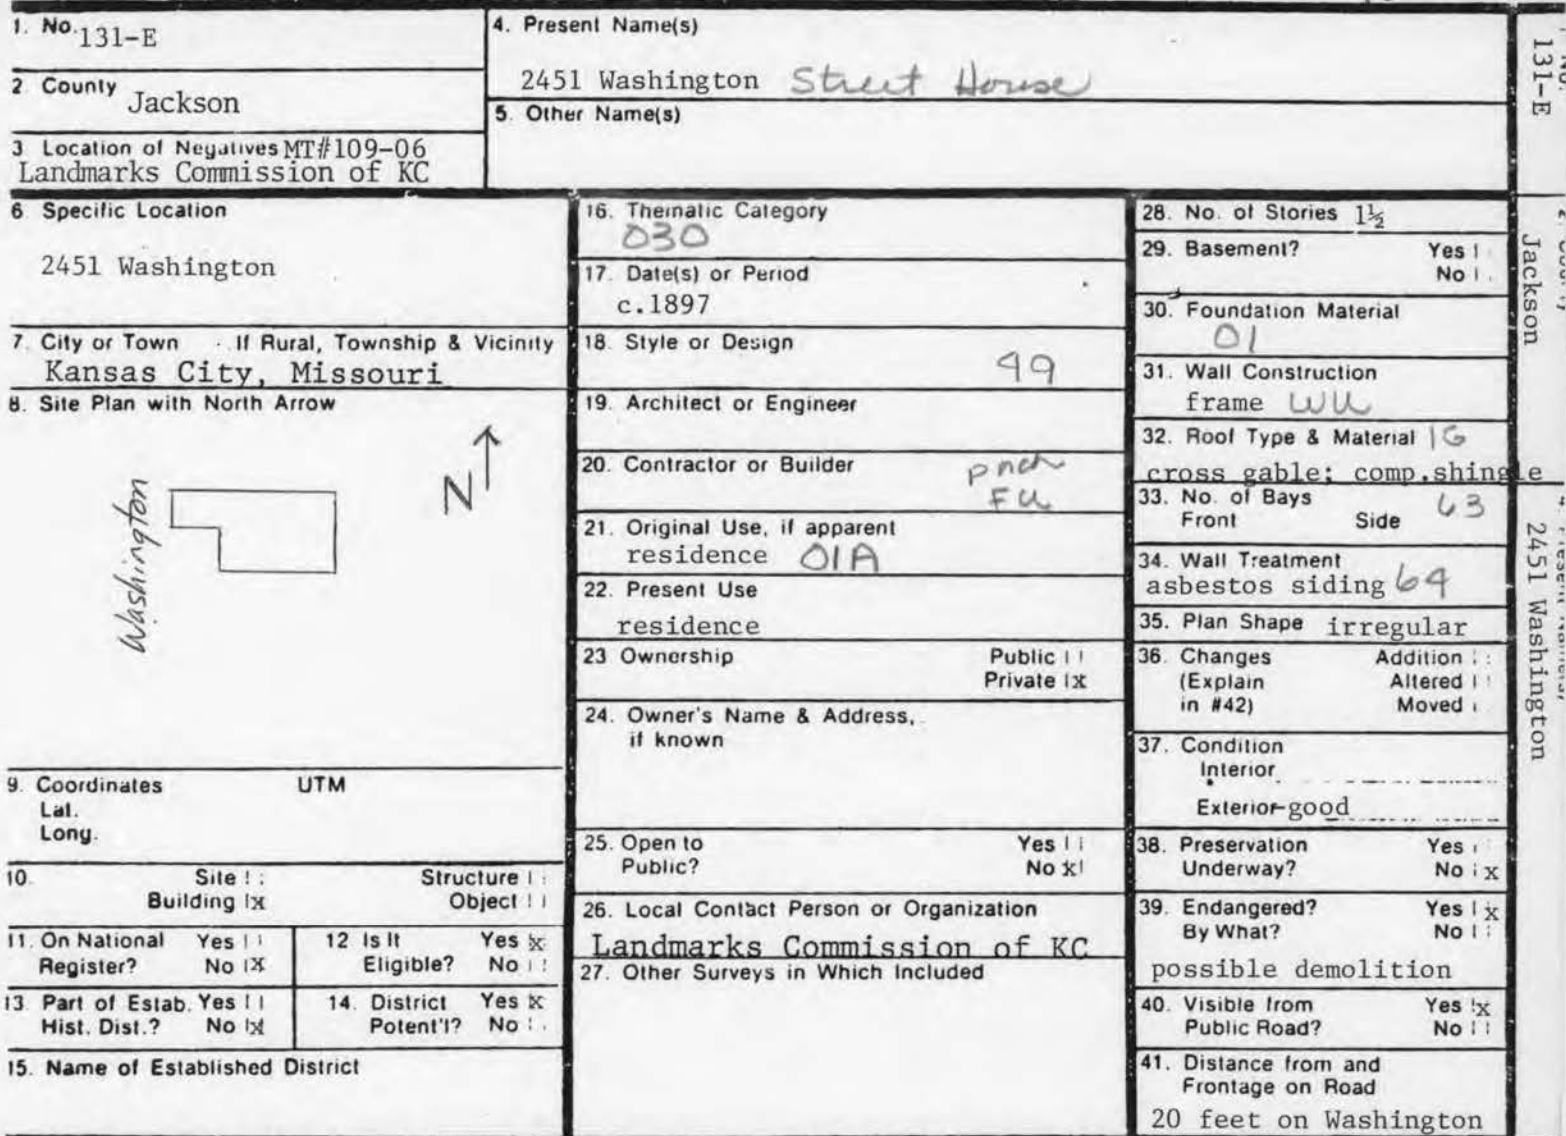 1. No. 131-E
2 County Jackson
3 Location of Negatives MT#109-06
Landmarks Commission of KC
4. Present Name(s)
2451 Washington Street House
5. Other Name(s)
6 Specific Location
2451 Washington
7. City or Town If Rural, Township & Vicinity
Kansas City, Missouri
8. Site Plan with North Arrow
Washington
N
9. Coordinates UTM
Lat.
Long.
10. Site Structure
Building x Object
11. On National Yes
Register? No x
12 Is It Yes x
Eligible? No
13 Part of Estab. Yes
Hist. Dist.? No x
14. District Yes x
Potent'l? No
15. Name of Established District
16. Thematic Category
030
17. Date(s) or Period
c.1897
18. Style or Design
49
19. Architect or Engineer
20. Contractor or Builder
pnch
FU
21. Original Use, if apparent
residence 01A
22. Present Use
residence
23 Ownership Public
Private x
24. Owner's Name & Address,
if known
25. Open to Yes
Public? No x
26. Local Contact Person or Organization
Landmarks Commission of KC
27. Other Surveys in Which Included
28. No. of Stories 1½
29. Basement? Yes
No
30. Foundation Material
01
31. Wall Construction
frame WU
32. Roof Type & Material 1G
cross gable; comp.shingle
33. No. of Bays 63
Front Side
34. Wall Treatment
asbestos siding 64
35. Plan Shape irregular
36. Changes Addition
(Explain Altered
in #42) Moved
37. Condition
Interior
Exterior good
38. Preservation Yes
Underway? No x
39. Endangered? Yes x
By What? No
possible demolition
40. Visible from Yes x
Public Road? No
41. Distance from and
Frontage on Road
20 feet on Washington
131-E
Jackson
2451 Washington